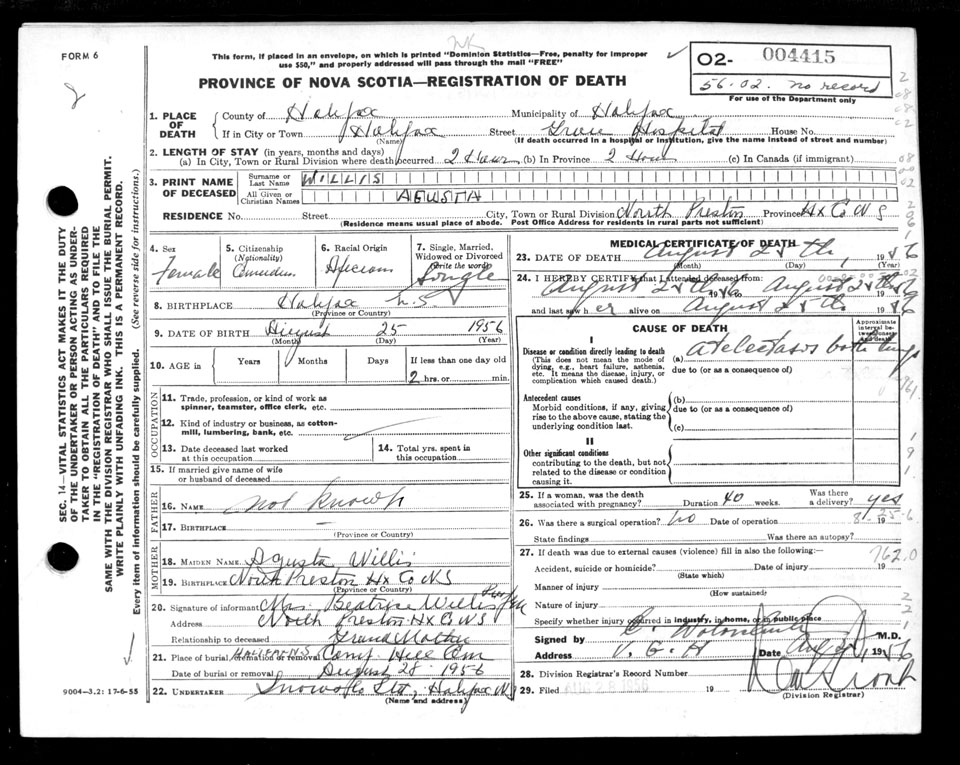 FORM 6
This form, if placed in an envelope, on which is printed "Dominion Statistics—Free, penalty for improper
use $50," and properly addressed will pass through the mail "FREE"
PROVINCE OF NOVA SCOTIA—REGISTRATION OF DEATH
O2- 004415
56-02. no record
For use of the Department only
SEC. 14—VITAL STATISTICS ACT MAKES IT THE DUTY
OF THE UNDERTAKER OR PERSON ACTING AS UNDER-
TAKER TO OBTAIN ALL THE PARTICULARS REQUIRED
IN THE "REGISTRATION OF DEATH" AND TO FILE THE
SAME WITH THE DIVISION REGISTRAR WHO SHALL ISSUE THE BURIAL PERMIT.
WRITE PLAINLY WITH UNFADING INK. THIS IS A PERMANENT RECORD.
Every item of information should be carefully supplied. (See reverse side for instructions.)
1. PLACE OF DEATH
County of Halifax Municipality of Halifax
If in City or Town Halifax Street Grace Hospital House No.
(Name) (If death occurred in a hospital or institution, give the name instead of street and number)
2. LENGTH OF STAY (in years, months and days)
(a) In City, Town or Rural Division where death occurred 2 Hour (b) In Province 2 Hour (c) In Canada (if immigrant)
3. PRINT NAME OF DECEASED
Surname or Last Name WILLIS
All Given or Christian Names AGUSTA
RESIDENCE No. Street City, Town or Rural Division North Preston Province Hx Co N S
(Residence means usual place of abode. Post Office Address for residents in rural parts not sufficient.)
4. Sex Female
5. Citizenship (Nationality) Canadian
6. Racial Origin African
7. Single, Married, Widowed or Divorced (Write the word) Single
8. BIRTHPLACE Halifax N.S
(Province or Country)
9. DATE OF BIRTH August 25 1956
(Month) (Day) (Year)
10. AGE in Years Months Days If less than one day old
2 hrs. or min.
OCCUPATION
11. Trade, profession, or kind of work as
spinner, teamster, office clerk, etc.
12. Kind of industry or business, as cotton-
mill, lumbering, bank, etc.
13. Date deceased last worked
at this occupation
14. Total yrs. spent in
this occupation
15. If married give name of wife
or husband of deceased
FATHER
16. NAME not known
17. BIRTHPLACE —
(Province or Country)
MOTHER
18. MAIDEN NAME Agusta Willis
19. BIRTHPLACE North Preston Hx Co NS
(Province or Country)
20. Signature of informant Mrs Beatrice Willis
Address North Preston Hx Co NS
Relationship to deceased Grand Mother
21. Place of burial, cremation or removal Camp Hill Cem
Date of burial or removal August 28 1956
22. UNDERTAKER Snows Co Ltd, Halifax NS
(Name and address)
9004-3.2: 17-6-55
MEDICAL CERTIFICATE OF DEATH
23. DATE OF DEATH August 25th, 1956
(Month) (Day) (Year)
24. I HEREBY CERTIFY that I attended deceased from:
August 25th 1956 to August 25th 1956
and last saw her alive on August 25th 1956
CAUSE OF DEATH
Approximate interval between onset and death
I
Disease or condition directly leading to death
(This does not mean the mode of
dying, e.g., heart failure, asthenia,
etc. It means the disease, injury, or
complication which caused death.)
(a) atelectasis both lungs
due to (or as a consequence of)
Antecedent causes
Morbid conditions, if any, giving
rise to the above cause, stating the
underlying condition last.
(b)
due to (or as a consequence of)
(c)
II
Other significant conditions
contributing to the death, but not
related to the disease or condition
causing it.
25. If a woman, was the death
associated with pregnancy? Duration 40 weeks. Was there a delivery? yes
26. Was there a surgical operation? No Date of operation 19
State findings Was there an autopsy?
27. If death was due to external causes (violence) fill in also the following:—
762.0
Accident, suicide or homicide? Date of injury 19
(State which)
Manner of injury
(How sustained)
Nature of injury
Specify whether injury occurred in industry, in home, or in public place
Signed by M.D.
Address V. G. H Date Aug 1956
28. Division Registrar's Record Number
29. Filed AUG 28 1956 19
(Division Registrar)